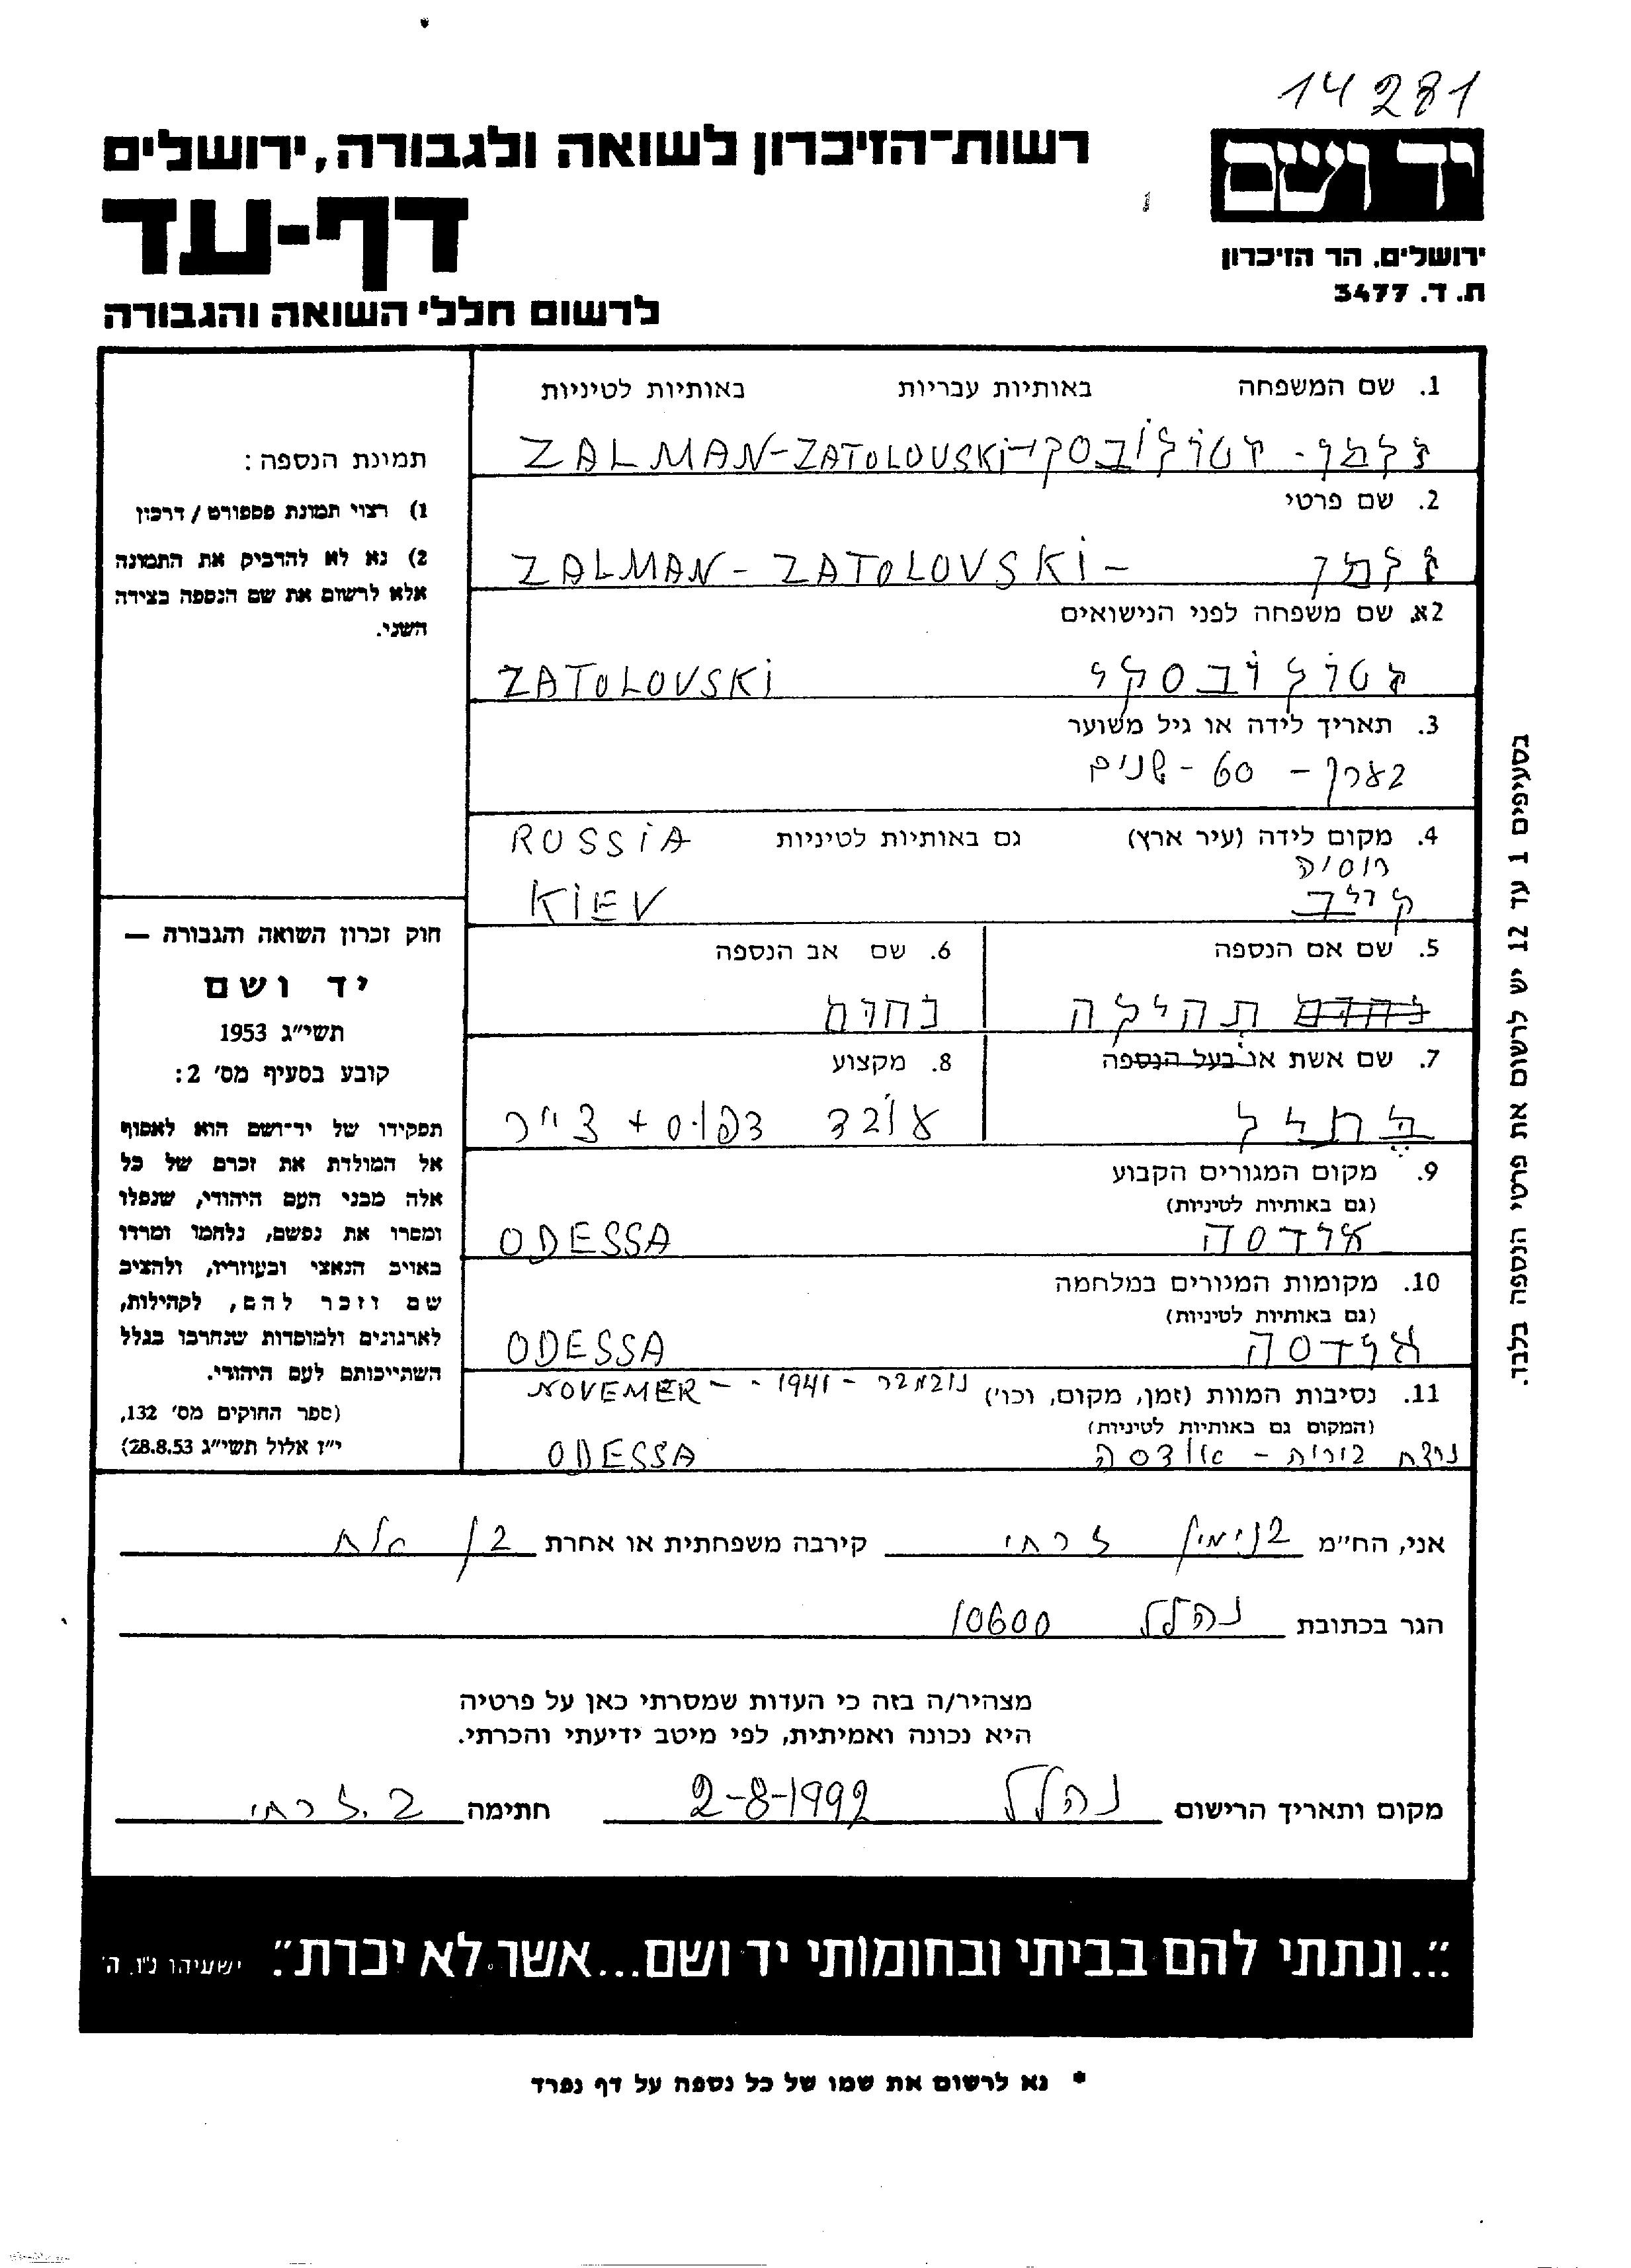 14281
רשות-הזיכרון לשואה ולגבורה, ירושלים
יד ושם
דף-עד
ירושלים, הר הזיכרון
ת. ד. 3477
לרשום חללי השואה והגבורה
1. שם המשפחה באותיות עבריות באותיות לטיניות
זלמן - זטולובסקי ZALMAN-ZATOLOVSKI
2. שם פרטי
זלמן ZALMAN - ZATOLOVSKI -
2א. שם משפחה לפני הנישואים
זטולובסקי ZATOLOVSKI
3. תאריך לידה או גיל משוער
בערך - 60 - שנים
4. מקום לידה (עיר ארץ) גם באותיות לטיניות RUSSIA
רוסיה
קייב KIEV
5. שם אם הנספה 6. שם אב הנספה
נחום תהילה נחום
7. שם אשת או בעל הנספה 8. מקצוע
עובד דפוס + צייר
9. מקום המגורים הקבוע
(גם באותיות לטיניות)
אודסה ODESSA
10. מקומות המגורים במלחמה
(גם באותיות לטיניות)
אודסה ODESSA
11. נסיבות המוות (זמן, מקום, וכו') נובמבר - 1941 - - NOVEMER
(המקום גם באותיות לטיניות)
אודסה ODESSA
תמונת הנספה:
1) רצוי תמונת פספורט / דרכון
2) נא לא להדביק את התמונה
אלא לרשום את שם הנספה בצידה
השני.
חוק זכרון השואה והגבורה —
יד ושם
תשי"ג 1953
קובע בסעיף מס' 2:
תפקידו של יד-ושם הוא לאסוף
אל המולדת את זכרם של כל
אלה מבני העם היהודי, שנפלו
ומסרו את נפשם, נלחמו ומרדו
באויב הנאצי ובעוזריו, ולהציב
שם וזכר להם, לקהילות,
לארגונים ולמוסדות שנחרבו בגלל
השתייכותם לעם היהודי.
(ספר החוקים מס' 132,
י"ז אלול תשי"ג 28.8.53)
בסעיפים 1 עד 12 יש לרשום את פרטי הנספה בלבד.
אני, הח"מ בנימין זרחי קירבה משפחתית או אחרת בן אח
הגר בכתובת נהלל 10600
מצהיר/ה בזה כי העדות שמסרתי כאן על פרטיה
היא נכונה ואמיתית, לפי מיטב ידיעתי והכרתי.
מקום ותאריך הרישום נהלל 2-8-1992 חתימה ב. זרחי
"...ונתתי להם בביתי ובחומותי יד ושם...אשר לא יכרת". ישעיהו נ"ו, ה'
* נא לרשום את שמו של כל נספה על דף נפרד